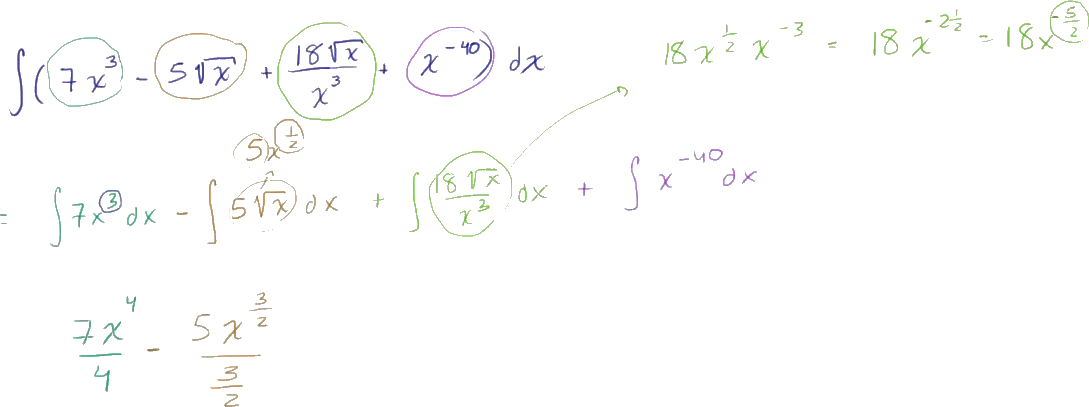 ∫(7x³ - 5√x + 18√x/x³ + x⁻⁴⁰) dx
18x^(1/2) x⁻³ = 18x^(-2 1/2) = 18x^(-5/2)
5x^(1/2)
= ∫7x³ dx - ∫5√x dx + ∫18√x/x³ dx + ∫x⁻⁴⁰ dx
7x⁴/4 - 5x^(3/2)/(3/2)